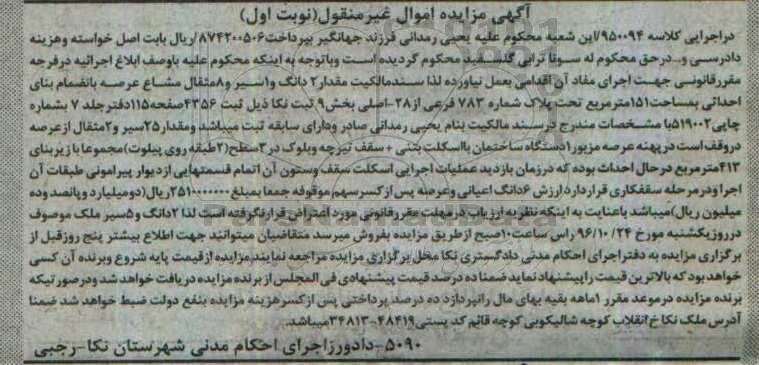 آگهی مزایده اموال غیرمنقول(نوبت اول)
دراجرایی کلاسه ۹۵۰۰۹۴/این شعبه محکوم علیه یحیی رمدانی فرزند جهانگیر بپرداخت۸۷۴۲۰۰۵۰۶/ریال بابت اصل خواسته وهزینه
دادرسی و...درحق محکوم له سونا ترابی گلسفید محکوم گردیده است وباتوجه به اینکه محکوم علیه باوصف ابلاغ اجرائیه درفرجه
مقررقانونی جهت اجرای مفاد آن اقدامی بعمل نیاورده لذا سندمالکیت مقدار۲ دانگ و۱سیر و۸مثقال مشاع عرصه بانضمام بنای
احداثی بمساحت۱۵۱مترمربع تحت پلاک شماره ۷۸۳ فرعی از۲۸-اصلی بخش۹ ثبت نکا ذیل ثبت ۴۳۵۶صفحه۱۱۵دفترجلد ۷ بشماره
چاپی۵۱۹۰۰۲با مشخصات مندرج درسند مالکیت بنام یحیی رمدانی صادر ودارای سابقه ثبت میباشد ومقدار۲۵سیر و۲مثقال ازعرصه
دروقف است درپهنه عرصه مزبور۱دستگاه ساختمان بااسکلت بتنی + سقف تیرچه وبلوک در۳سطح(۲طبقه روی پیلوت)مجموعا با زیربنای
۴۱۳مترمربع درحال احداث بوده که درزمان بازدید عملیات اجرایی اسکلت سقف وستون آن اتمام قسمتهایی ازدیوار پیرامونی طبقات آن
اجرا ودرمرحله سفتکاری قراردارد ارزش ۶دانگ اعیانی وعرصه پس ازکسرسهم موقوفه جمعا بمبلغ ۲۵۱۰۰۰۰۰۰۰ریال(دومیلیارد وپانصدوده
میلیون ریال)میباشد باعنایت به اینکه نظریه ارزیاب درمهلت مقررقانونی مورد اعتراض قرارنگرفته است لذا ۲دانگ و۵سیر ملک موصوف
درروزیکشنبه مورخ ۹۶/۱۰/۲۴ راس ساعت۱۰صبح ازطریق مزایده بفروش میرسد متقاضیان میتوانند جهت اطلاع بیشتر پنج روزقبل از
برگزاری مزایده به دفتراجرای احکام مدنی دادگستری نکا محل برگزاری مزایده مراجعه نمایند.مزایده ازقیمت پایه شروع وبرنده آن کسی
خواهد بود که بالاترین قیمت را پیشنهاد نماید ضمنا ده درصد قیمت پیشنهادی فی المجلس از برنده مزایده دریافت خواهد شد ودرصورتیکه
برنده مزایده درموعد مقرر ۱ماهه بقیه بهای مال رانپردازد ده درصد پرداختی پس ازکسرهزینه مزایده بنفع دولت ضبط خواهد شد ضمنا
آدرس ملک نکا خ انقلاب کوچه شالیکوبی کوچه قائم کد پستی۴۸۴۱۹-۳۴۸۱۳میباشد.
۵۰۹۰-دادورزاجرای احکام مدنی شهرستان نکا-رجبی